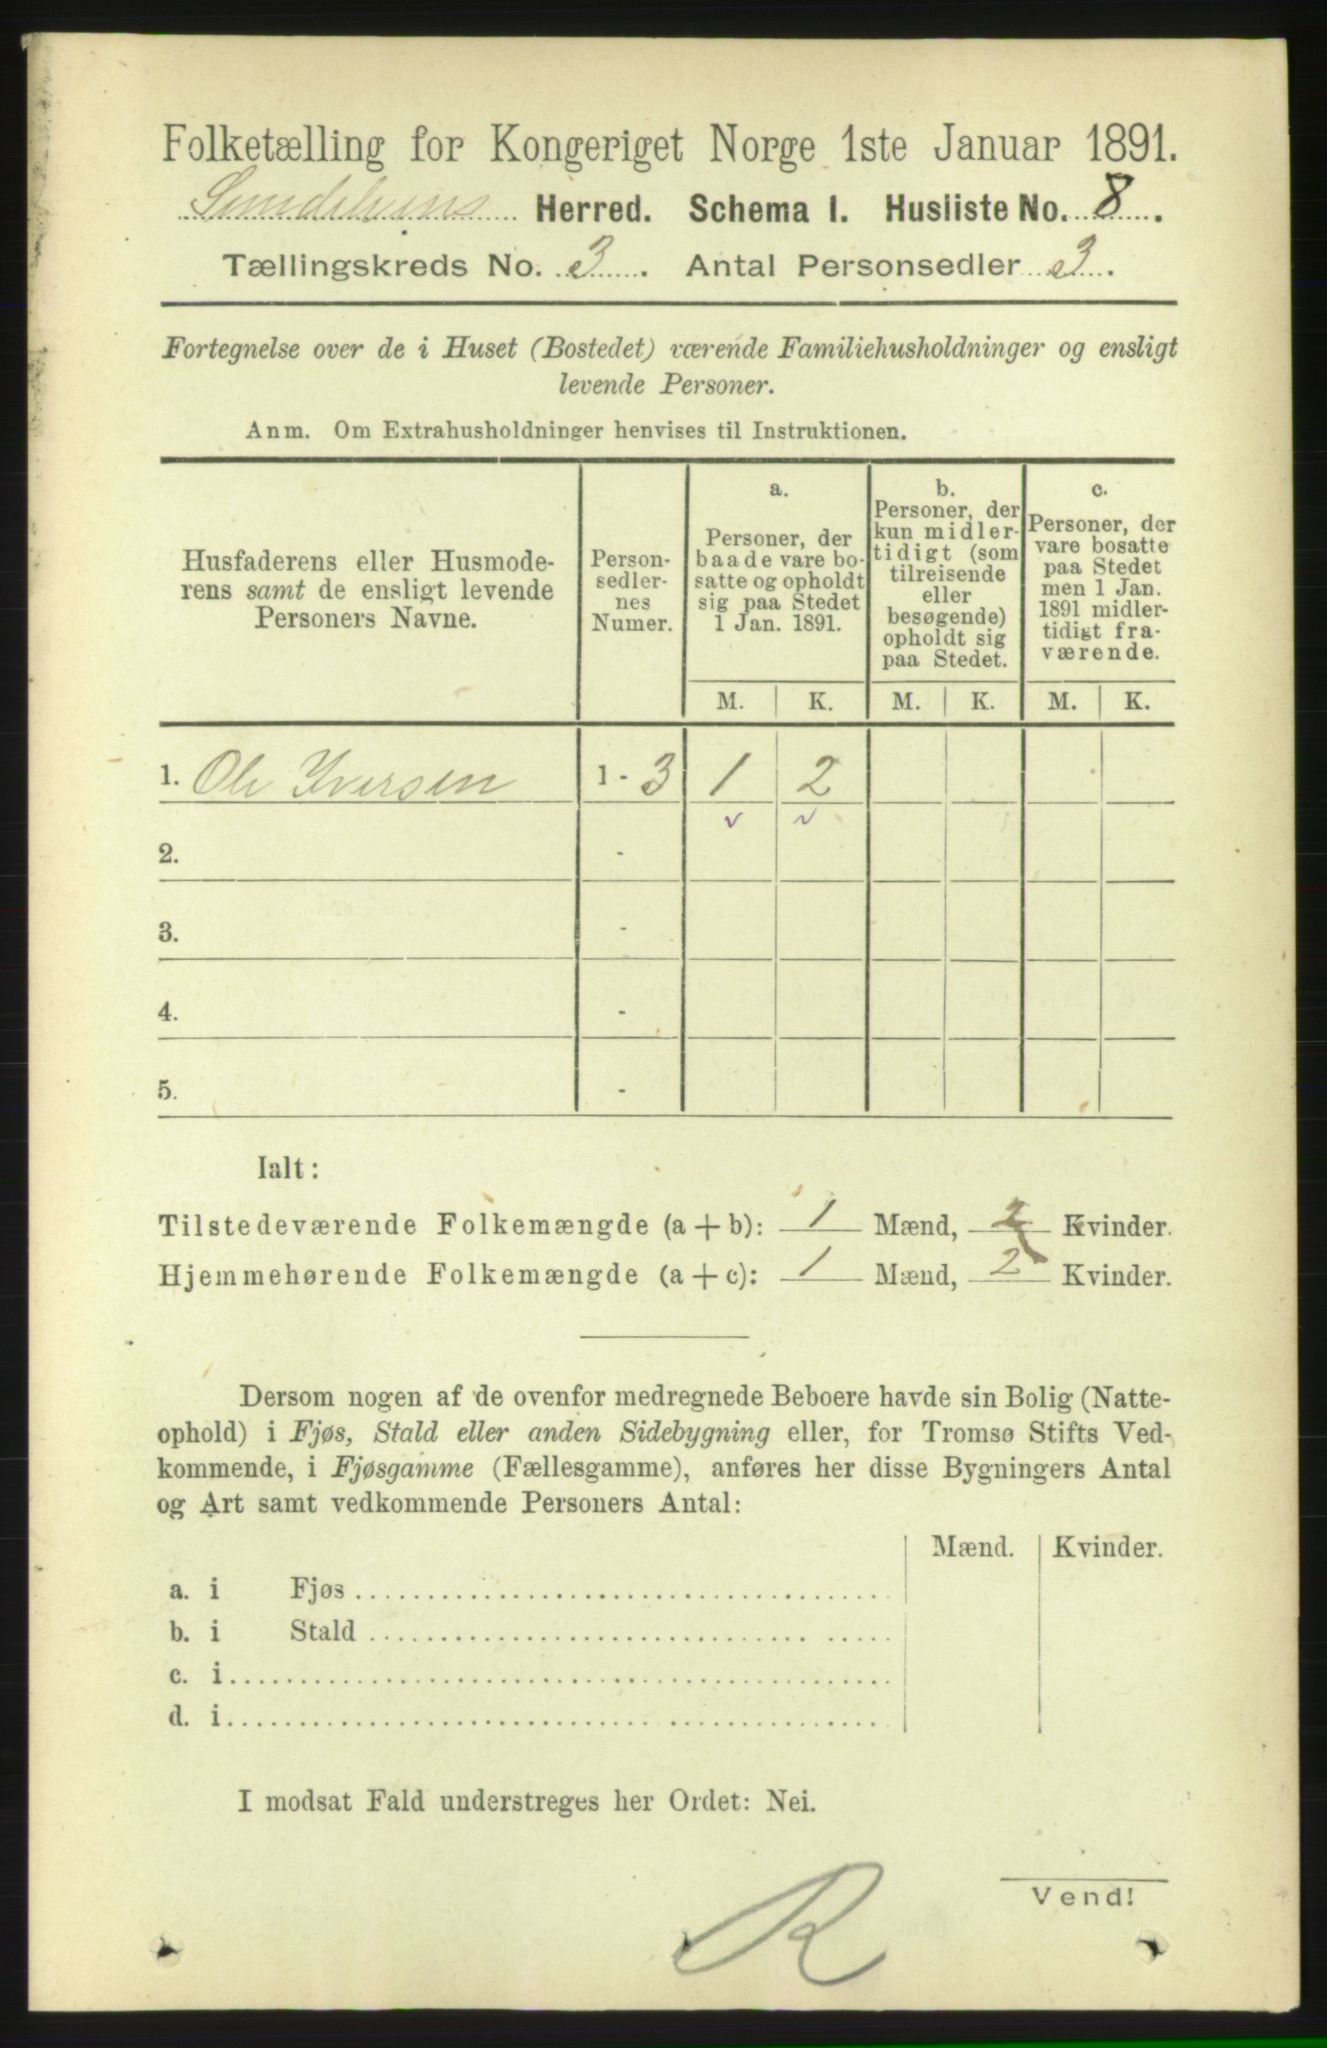 Folketælling for Kongeriget Norge 1ste Januar 1891.
Herred. Schema I. Husliste No. 8.
Tællingskreds No. 3. Antal Personsedler 3.
Fortegnelse over de i Huset (Bostedet) værende Familiehusholdninger og ensligt
levende Personer.
Anm. Om Extrahusholdninger henvises til Instruktionen.
Husfaderens eller Husmode-
rens samt de ensligt levende
Personers Navne.
Person-
sedler-
nes
Numer.
a.
Personer, der
baade vare bo-
satte og opholdt
sig paa Stedet
1 Jan. 1891.
b.
Personer, der
kun midler-
tidigt (som
tilreisende
eller
besøgende)
opholdt sig
paa Stedet.
c.
Personer, der
vare bosatte
paa Stedet
men 1 Jan.
1891 midler-
tidigt fra-
værende.
M. K. M. K. M. K.
1. Ole Iversen 1 - 3 1 2
2. -
3. -
4. -
5. -
Ialt:
Tilstedeværende Folkemængde (a + b): 1 Mænd, 2 Kvinder.
Hjemmehørende Folkemængde (a + c): 1 Mænd, 2 Kvinder.
Dersom nogen af de ovenfor medregnede Beboere havde sin Bolig (Natte-
ophold) i Fjøs, Stald eller anden Sidebygning eller, for Tromsø Stifts Ved-
kommende, i Fjøsgamme (Fællesgamme), anføres her disse Bygningers Antal
og Art samt vedkommende Personers Antal:
Mænd. Kvinder.
a. i Fjøs
b. i Stald
c. i
d. i
I modsat Fald understreges her Ordet: Nei.
Vend!
R